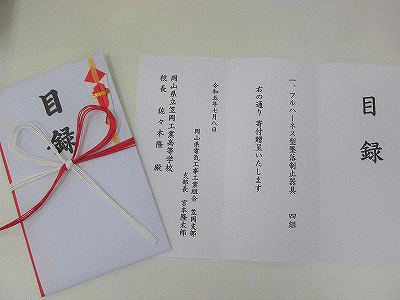 目録
目録
一、フルハーネス型墜落制止器具 四組
右の通り 寄付贈呈いたします
令和五年七月八日
岡山県電気工事工業組合 笠岡支部
支部長 宮本隆太郎
岡山県立笠岡工業高等学校
校長 佐々木隆 殿